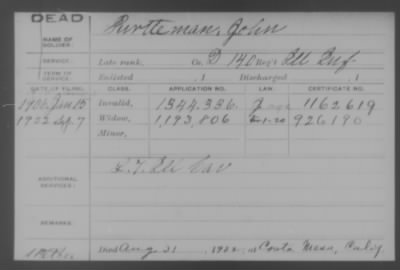 DEAD
NAME OF SOLDIER: John
SERVICE: Late rank, Co. D 140 Reg't Ill Inf
TERM OF SERVICE: Enlisted , 1 Discharged , 1
DATE OF FILING. CLASS. APPLICATION NO. LAW. CERTIFICATE NO.
1906 Jan 15 Invalid, 1344,336 1162619
1922 Sep 7 Widow, 1,193,806 926190
Minor,
ADDITIONAL SERVICES: Cav
REMARKS:
Died Aug 21 , 1922, at Costa Mesa, Calif